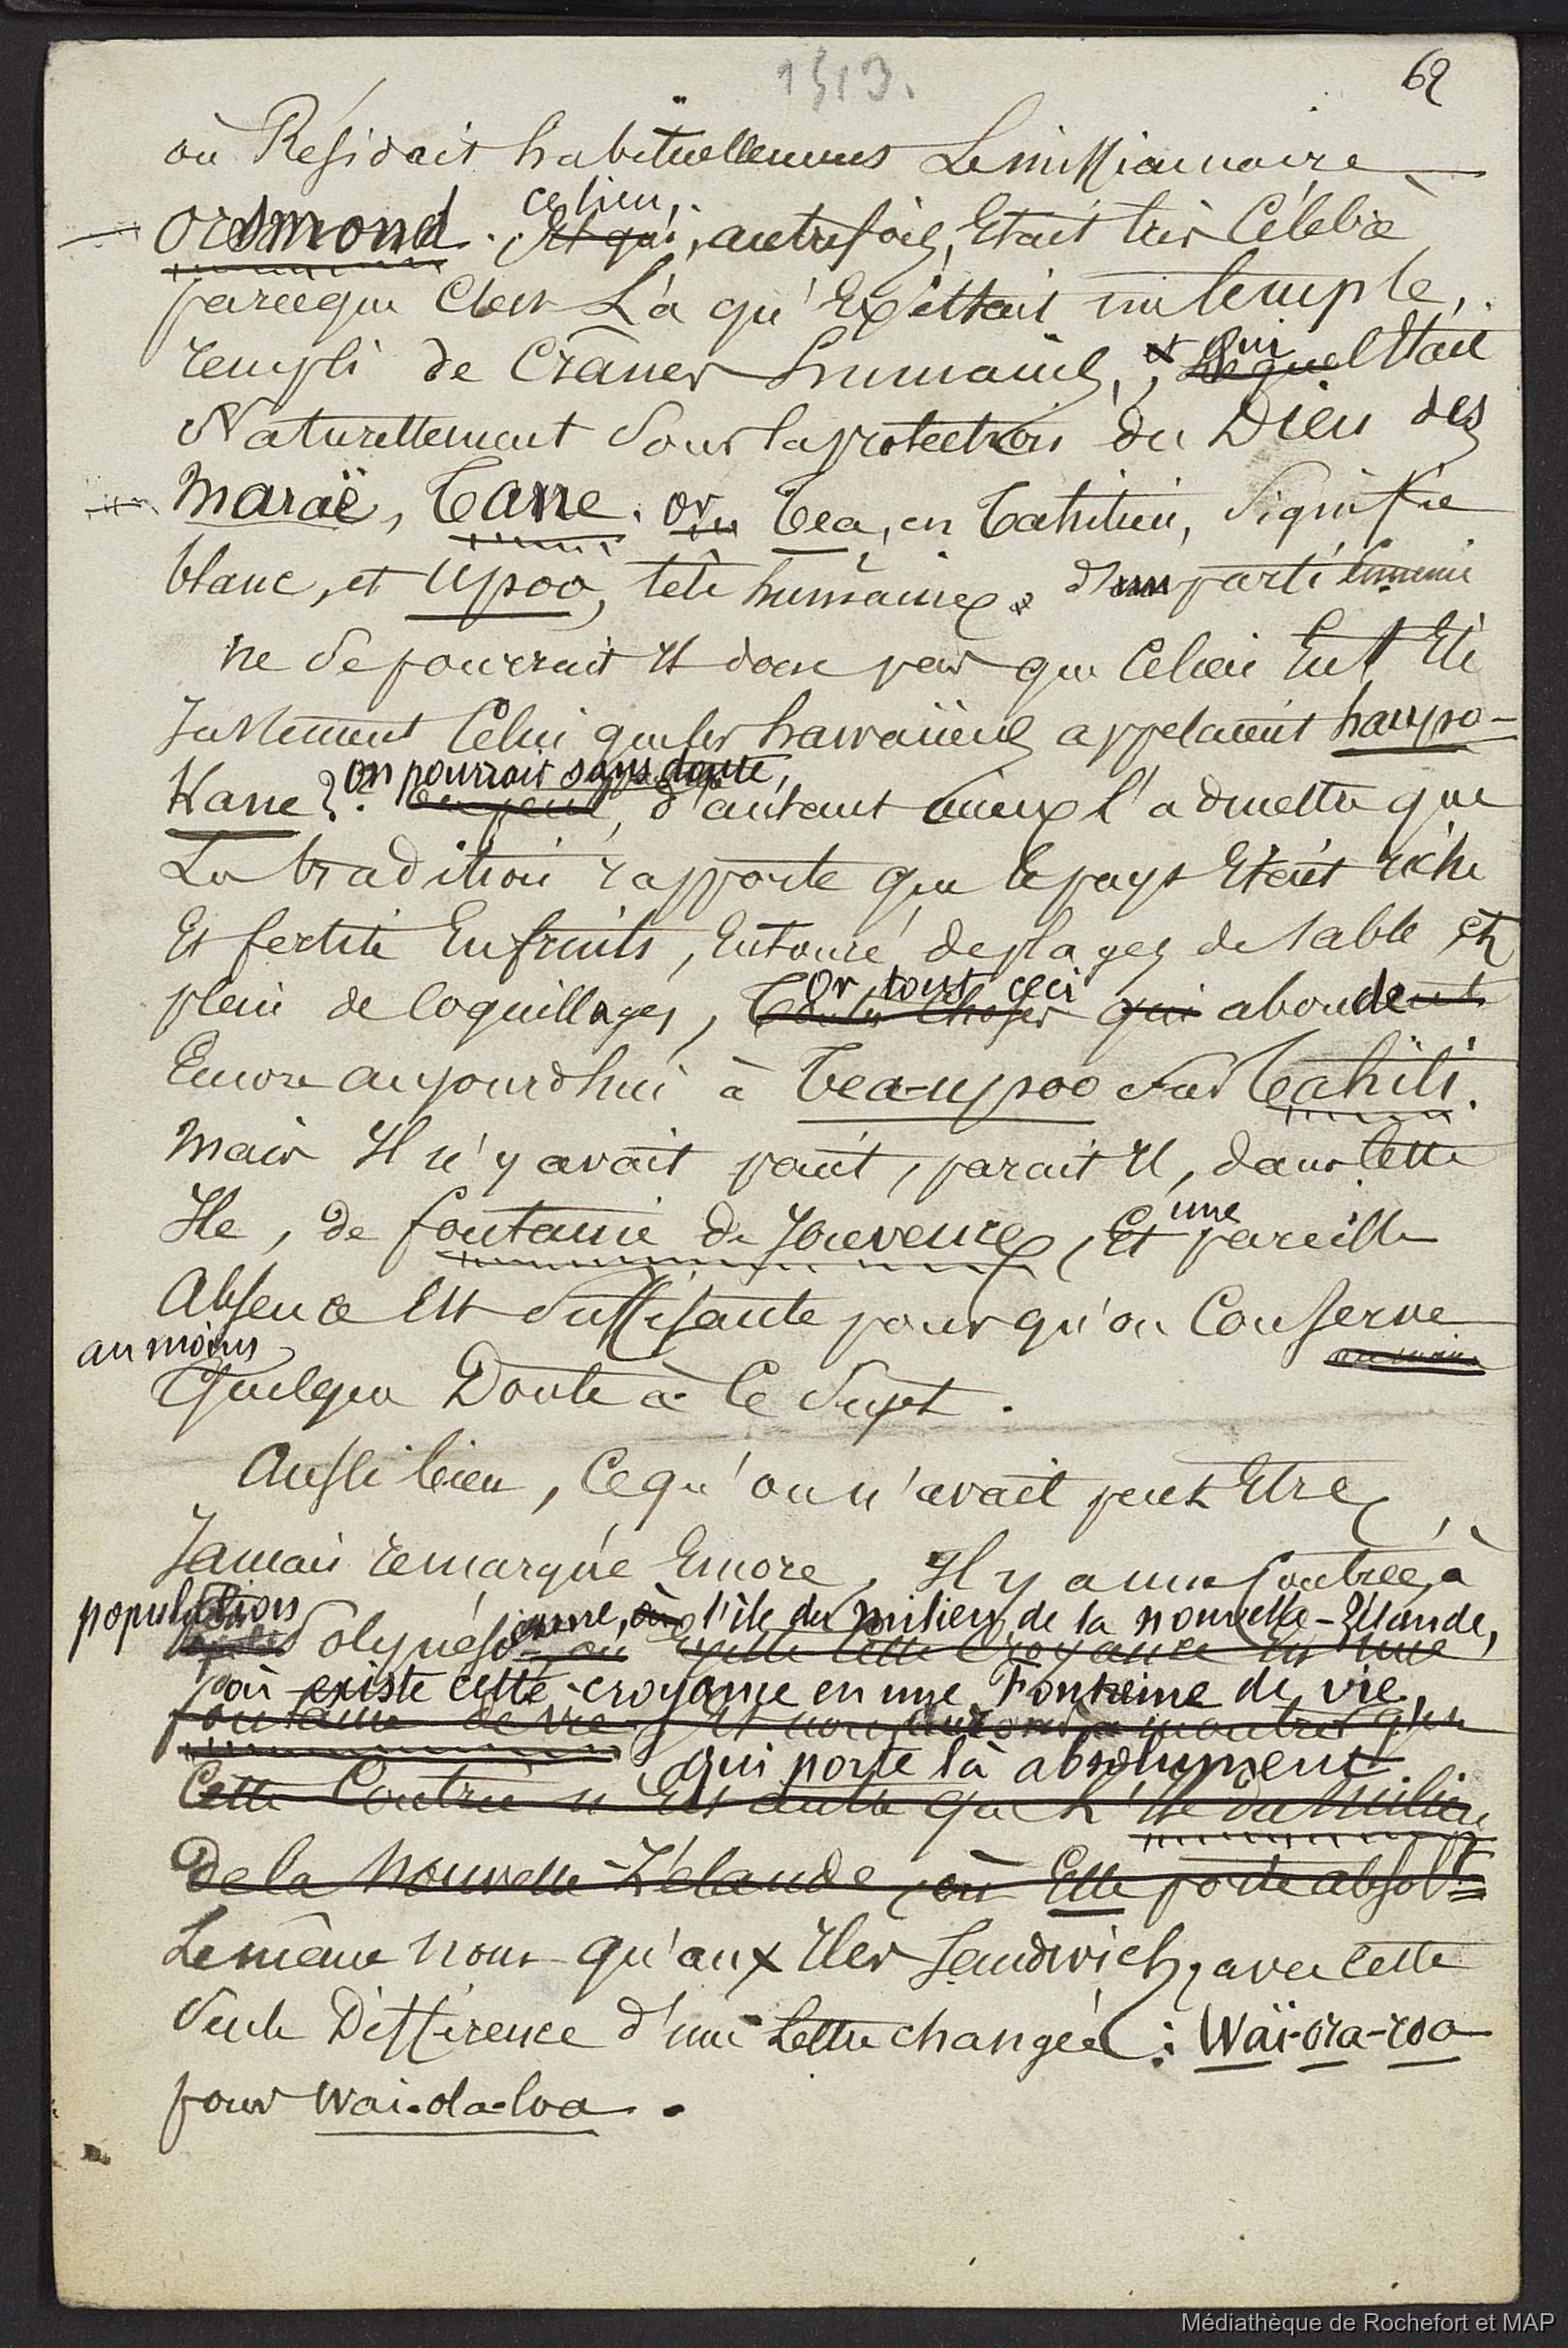 1513.
62
où Résidait habituellement Le missionnaire
orsmond. ce lieu, Et qui, autrefois, Etait très Célèbre
parceque C'est Là qu'Existait un temple,
rempli de Crânes humains, et qui Lequel Etait
Naturellement Sous la protection du Dieu des
Maraë, Tane. or Tea, en Tahitien, Signifie
blanc, et Upoo, tête humaine.
ne Se pourrait Il donc pas que Celui Eut Eté
Justement Celui que les hawaiiens appelaient haupo-
Kane? on pourrait sans doute, d'autant mieux l'admettre que
La tradition rapporte que le pays Etait riche
Et fertile En fruits, Entouré de plages de Sable et
plein de Coquillages, or tout ceci Toutes choses qui abondent
Encore aujourdhui à Tea-upoo Sur Tahiti.
Mais Il n'y avait point, parait Il, dans Cette
Ile, de fontaine de Jouvence, Et une pareille
Absence Est Suffisante pour qu'on Conserve
au moins
Quelque Doute à Ce Sujet.
Aussi bien, Ce qu'on n'avait peut Etre
Jamais remarqué Encore, Il y a une Contrée, à
population Polynésienne, où l'île du milieu, de la nouvelle-Zélande,
où existe cette croyance en une Fontaine de vie,
fontaine de vie. Et nous montrer que
qui porte là absolument
Cette Contrée n'Est autre que L'Ile du Milieu
De la Nouvelle-Zélande, où Elle porte absolt
Le même nom qu'aux Iles Sandwich, avec cette
Seule Différence d'une Lettre changée: Waï-ora-roa
pour Wai-ola-loa.
Médiathèque de Rochefort et MAP